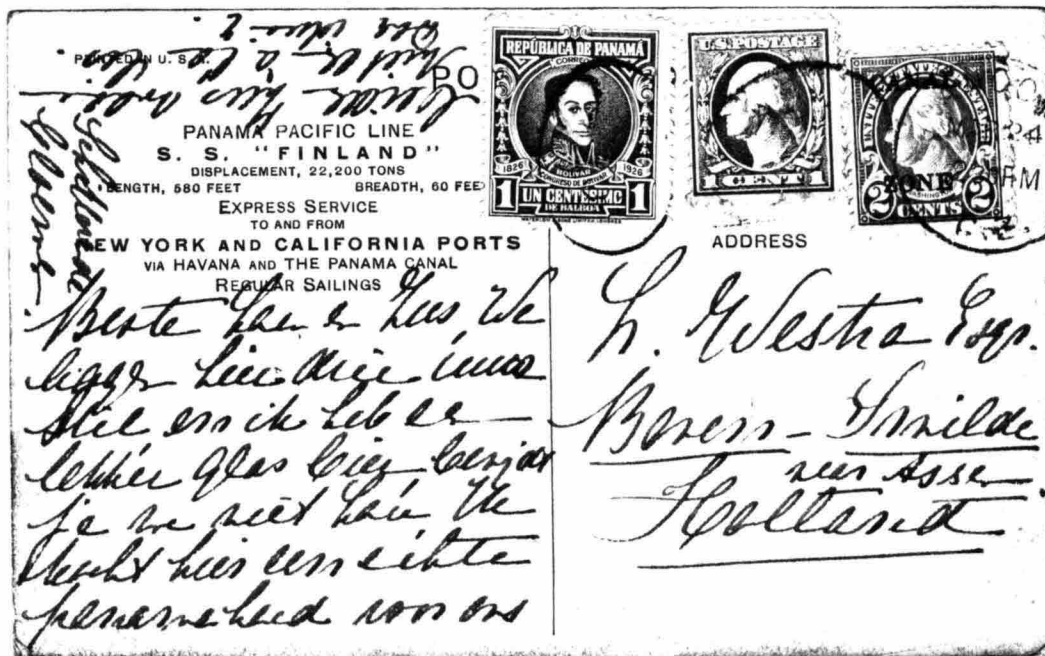 PRINTED IN U. S. A.
PO
PANAMA PACIFIC LINE
S. S. "FINLAND"
DISPLACEMENT, 22,200 TONS
LENGTH, 580 FEET BREADTH, 60 FEE
EXPRESS SERVICE
TO AND FROM
NEW YORK AND CALIFORNIA PORTS
VIA HAVANA AND THE PANAMA CANAL
REGULAR SAILINGS
Beste en We
liggen hier drie uur
stil en ik heb een
lekker glas bier benijdt
je me niet We
kocht hier een echte
panamahoed voor ons
REPÚBLICA DE PANAMÁ
CORREOS
BOLIVAR
1826 1926
1 UN CENTESIMO 1
DE BALBOA
U.S. POSTAGE
1 CENT 1
UNITED STATES POSTAGE
ZONE
WASHINGTON
2 CENTS 2
24
PM
ADDRESS
H. Westra Esqr.
Boven-Smilde
near Assen
Holland